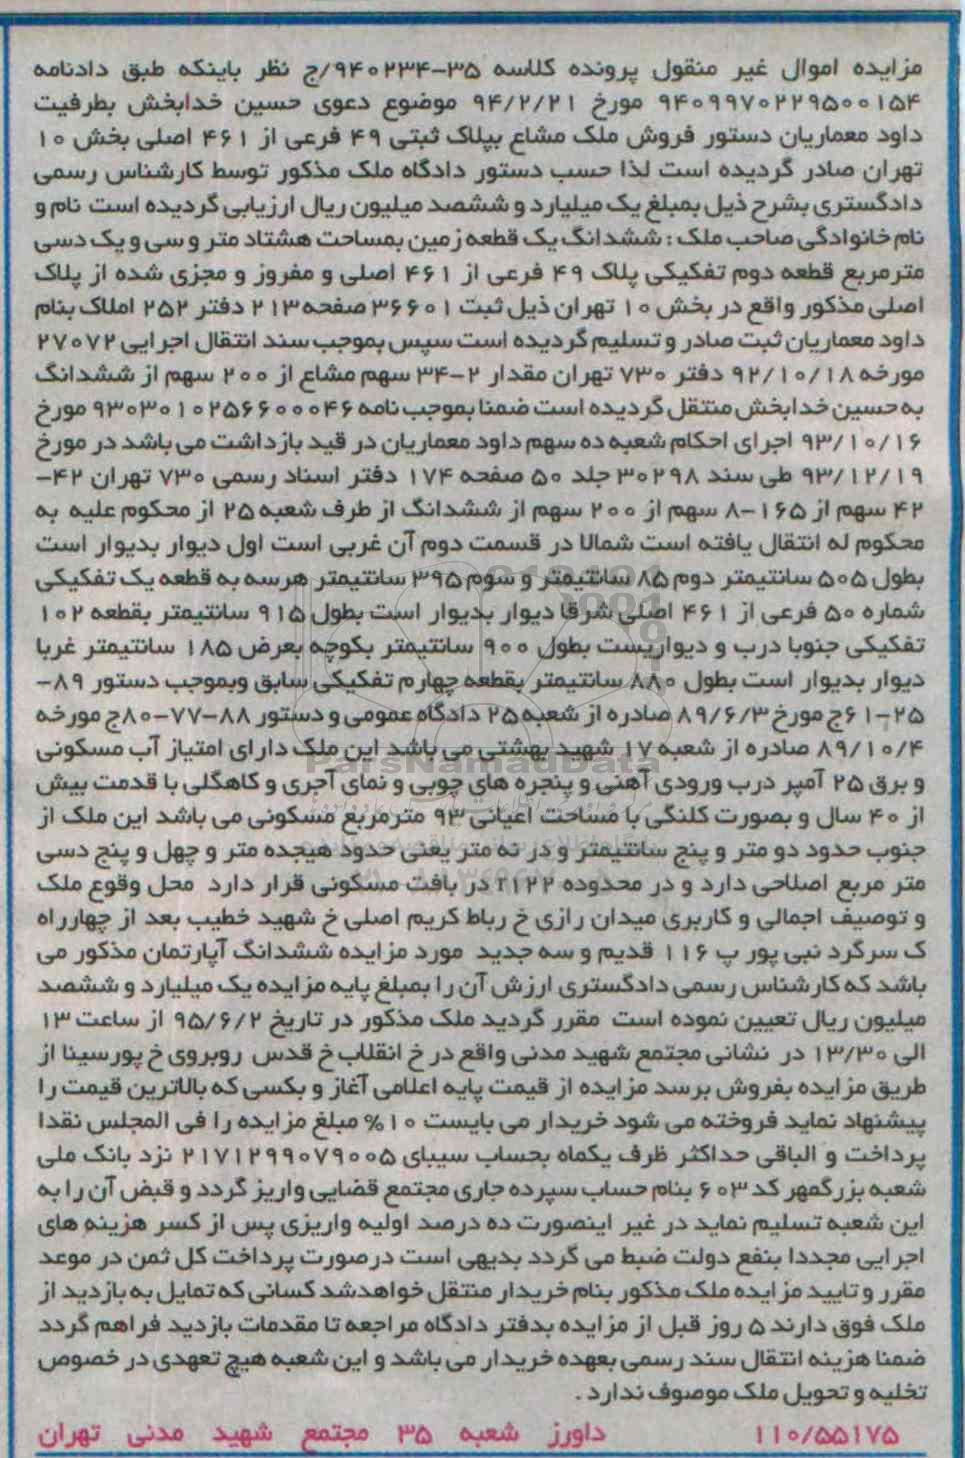 مزایده اموال غیر منقول پرونده کلاسه ۳۵-۹۴۰۲۳۴/ج نظر باینکه طبق دادنامه
۹۴۰۹۹۷۰۲۲۹۵۰۰۱۵۴ مورخ ۹۴/۲/۲۱ موضوع دعوی حسین خدابخش بطرفیت
داود معماریان دستور فروش ملک مشاع بپلاک ثبتی ۴۹ فرعی از ۴۶۱ اصلی بخش ۱۰
تهران صادر گردیده است لذا حسب دستور دادگاه ملک مذکور توسط کارشناس رسمی
دادگستری بشرح ذیل بمبلغ یک میلیارد و ششصد میلیون ریال ارزیابی گردیده است نام و
نام خانوادگی صاحب ملک : ششدانگ یک قطعه زمین بمساحت هشتاد متر و سی و یک دسی
مترمربع قطعه دوم تفکیکی پلاک ۴۹ فرعی از ۴۶۱ اصلی و مفروز و مجزی شده از پلاک
اصلی مذکور واقع در بخش ۱۰ تهران ذیل ثبت ۳۶۶۰۱ صفحه ۲۱۳ دفتر ۲۵۲ املاک بنام
داود معماریان ثبت صادر و تسلیم گردیده است سپس بموجب سند انتقال اجرایی ۲۷۰۷۲
مورخه ۹۲/۱۰/۱۸ دفتر ۷۳۰ تهران مقدار ۲-۳۴ سهم مشاع از ۲۰۰ سهم از ششدانگ
به حسین خدابخش منتقل گردیده است ضمنا بموجب نامه ۹۳۰۳۰۱۰۲۵۶۶۰۰۰۴۶ مورخ
۹۳/۱۰/۱۶ اجرای احکام شعبه ده سهم داود معماریان در قید بازداشت می باشد در مورخ
۹۳/۱۲/۱۹ طی سند ۳۰۲۹۸ جلد ۵۰ صفحه ۱۷۴ دفتر اسناد رسمی ۷۳۰ تهران ۴۲-
۴۲ سهم از ۱۶۵-۸ سهم از ۲۰۰ سهم از ششدانگ از طرف شعبه ۲۵ از محکوم علیه به
محکوم له انتقال یافته است شمالا در قسمت دوم آن غربی است اول دیوار بدیوار است
بطول ۵۰۵ سانتیمتر دوم ۸۵ سانتیمتر و سوم ۳۹۵ سانتیمتر هرسه به قطعه یک تفکیکی
شماره ۵۰ فرعی از ۴۶۱ اصلی شرقا دیوار بدیوار است بطول ۹۱۵ سانتیمتر بقطعه ۱۰۲
تفکیکی جنوبا درب و دیواریست بطول ۹۰۰ سانتیمتر بکوچه بعرض ۱۸۵ سانتیمتر غربا
دیوار بدیوار است بطول ۸۸۰ سانتیمتر بقطعه چهارم تفکیکی سابق وبموجب دستور ۸۹-
۲۵-۶۱ج مورخ ۸۹/۶/۳ صادره از شعبه ۲۵ دادگاه عمومی و دستور ۸۸-۷۷-۸۰ج مورخه
۸۹/۱۰/۴ صادره از شعبه ۱۷ شهید بهشتی می باشد این ملک دارای امتیاز آب مسکونی
و برق ۲۵ آمپر درب ورودی آهنی و پنجره های چوبی و نمای آجری و کاهگلی با قدمت بیش
از ۴۰ سال و بصورت کلنگی با مساحت اعیانی ۹۳ مترمربع مسکونی می باشد این ملک از
جنوب حدود دو متر و پنج سانتیمتر و در نه متر یعنی حدود هیجده متر و چهل و پنج دسی
متر مربع اصلاحی دارد و در محدوده r۱۲۲ در بافت مسکونی قرار دارد محل وقوع ملک
و توصیف اجمالی و کاربری میدان رازی خ رباط کریم اصلی خ شهید خطیب بعد از چهارراه
ک سرگرد نبی پور پ ۱۱۶ قدیم و سه جدید مورد مزایده ششدانگ آپارتمان مذکور می
باشد که کارشناس رسمی دادگستری ارزش آن را بمبلغ پایه مزایده یک میلیارد و ششصد
میلیون ریال تعیین نموده است مقرر گردید ملک مذکور در تاریخ ۹۵/۶/۲ از ساعت ۱۳
الی ۱۳/۳۰ در نشانی مجتمع شهید مدنی واقع در خ انقلاب خ قدس روبروی خ پورسینا از
طریق مزایده بفروش برسد مزایده از قیمت پایه اعلامی آغاز و بکسی که بالاترین قیمت را
پیشنهاد نماید فروخته می شود خریدار می بایست ۱۰% مبلغ مزایده را فی المجلس نقدا
پرداخت و الباقی حداکثر ظرف یکماه بحساب سیبای ۲۱۷۱۲۹۹۰۷۹۰۰۵ نزد بانک ملی
شعبه بزرگمهر کد ۶۰۳ بنام حساب سپرده جاری مجتمع قضایی واریز گردد و قبض آن را به
این شعبه تسلیم نماید در غیر اینصورت ده درصد اولیه واریزی پس از کسر هزینه های
اجرایی مجددا بنفع دولت ضبط می گردد بدیهی است درصورت پرداخت کل ثمن در موعد
مقرر و تایید مزایده ملک مذکور بنام خریدار منتقل خواهدشد کسانی که تمایل به بازدید از
ملک فوق دارند ۵ روز قبل از مزایده بدفتر دادگاه مراجعه تا مقدمات بازدید فراهم گردد
ضمنا هزینه انتقال سند رسمی بعهده خریدار می باشد و این شعبه هیچ تعهدی در خصوص
تخلیه و تحویل ملک موصوف ندارد .
۱۱۰/۵۵۱۷۵ داورز شعبه ۳۵ مجتمع شهید مدنی تهران
ParsNamadData